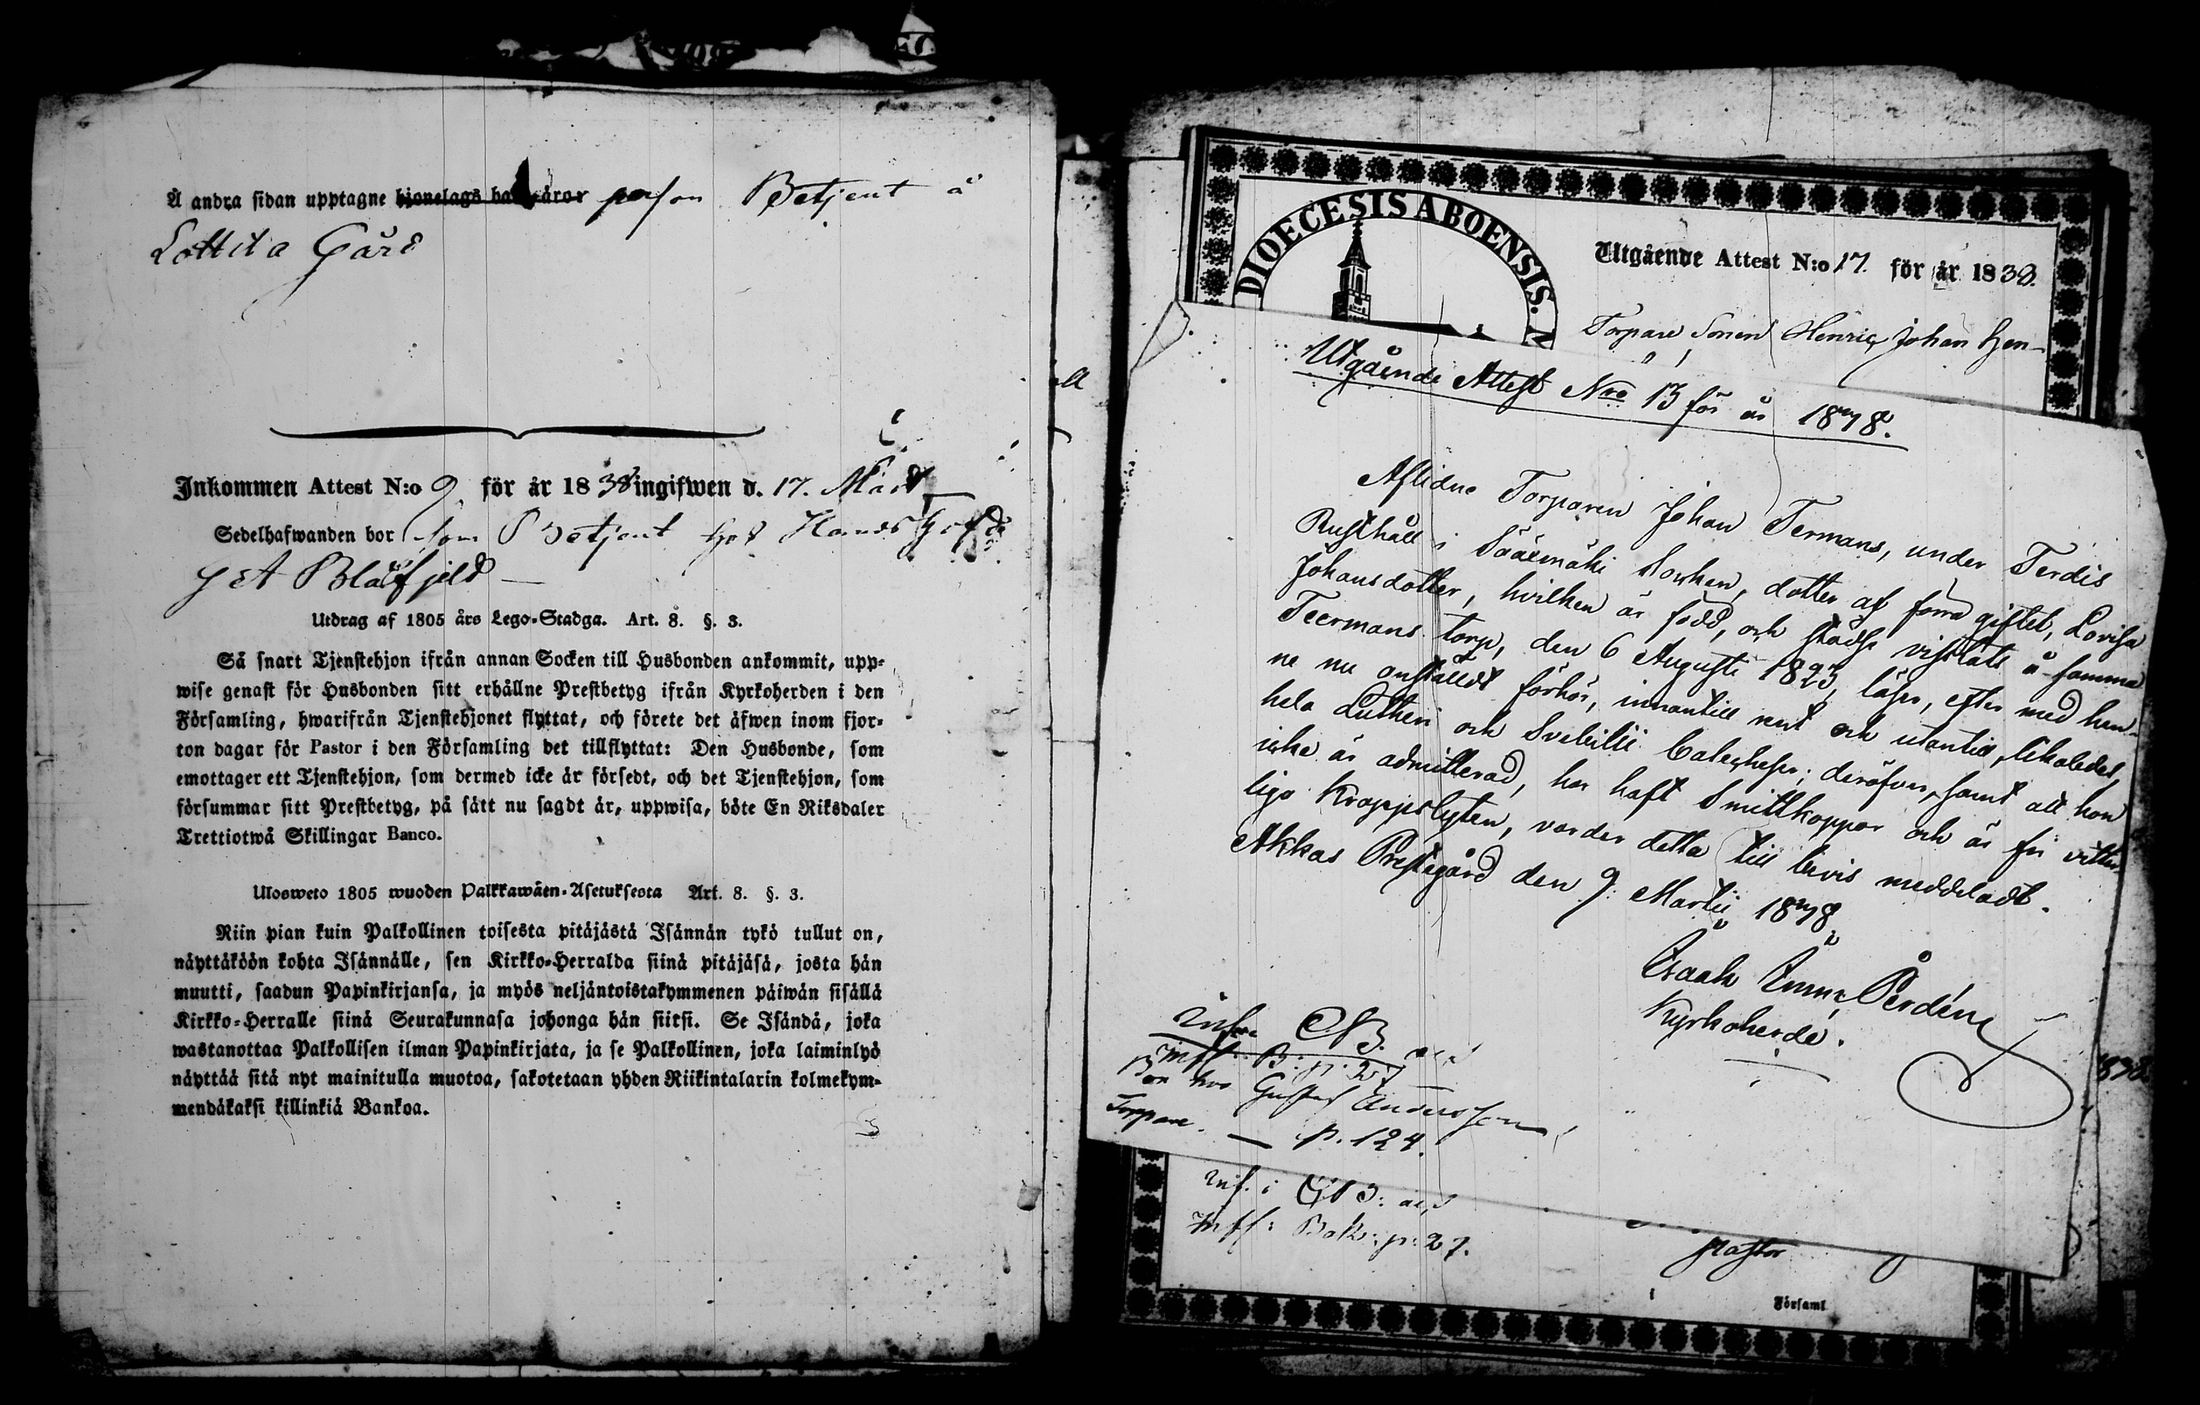 Å andra sidan upptagne hjonelags person Betjent å
Lottila Gård
Inkommen Attest N:o 9 för år 1838 ingifwen d. 17. Mart
Sedelhafwanden bor som Betjent hos
G A Blåfjeld
Utdrag af 1805 års Lego-Stadga. Art. 8. §. 3.
Så snart Tjenstehjon ifrån annan Socken till Husbonden ankommit, upp-
wise genast för Husbonden sitt erhållne Prestbetyg ifrån Kyrkoherden i den
Församling, hwarifrån Tjenstehjonet flyttat, och förete det äfwen inom fjor-
ton dagar för Pastor i den Församling det tillflyttat: Den Husbonde, som
emottager ett Tjenstehjon, som dermed icke är försedt, och det Tjenstehjon, som
försummar sitt Prestbetyg, på sätt nu sagdt är, uppwisa, böte En Riksdaler
Trettiotwå Skillingar Banco.
Ulosweto 1805 wuoden Palkkawäen-Asetuksesta Art. 8. §. 3.
Niin pian kuin Palkollinen toisesta pitäjästä Isännän tykö tullut on,
näyttäköön kohta Isännälle, sen Kirkko-Herralda siinä pitäjäsä, josta hän
muutti, saadun Papinkirjansa, ja myös neljäntoistakymmenen päiwän sisällä
Kirkko-Herralle siinä Seurakunnasa johonga hän siitsi. Se Isändä, joka
wastanottaa Palkollisen ilman Papinkirjata, ja se Palkollinen, joka laiminlyö
näyttää sitä nyt mainitulla muotoa, sakotetaan yhden Riikintalarin kolmekym-
mendäkaksi killinkiä Bankoa.
DIOECESIS ABOENSIS.
Utgående Attest N:o 17. för år 1838.
Torpare Sonen Henric Johan Hen-
Utgående Attest Nro 13 för år 1838.
Aflidne Torparen Johan Termans, under Terdis
Rusthåll i Sääxmäki Socken, dotter af förra giftet, Lovisa
Johansdotter, hvilken är född, och städse vistats å samma
Teermans torp, den 6 Augusti 1823, läser, efter med hen-
ne nu anställdt förhör, innantill rent och utantill, likaledes,
hela Lutheri och Svebilii Catecheser; deräfver, samt att hon
icke är admitterad, har haft Smittkoppor och är fri vitter-
liga kroppslyten, varder detta till bevis meddeladt.
Akkas Prestegård den 9. Martii 1838.
Isaak Perdén
Kyrkoherde.
Infl. B. p. 27
Bor hos Gustaf Andersson
Torpare. — p. 124.
Infl: Bok: p: 27.
Pastor
Församl
838.